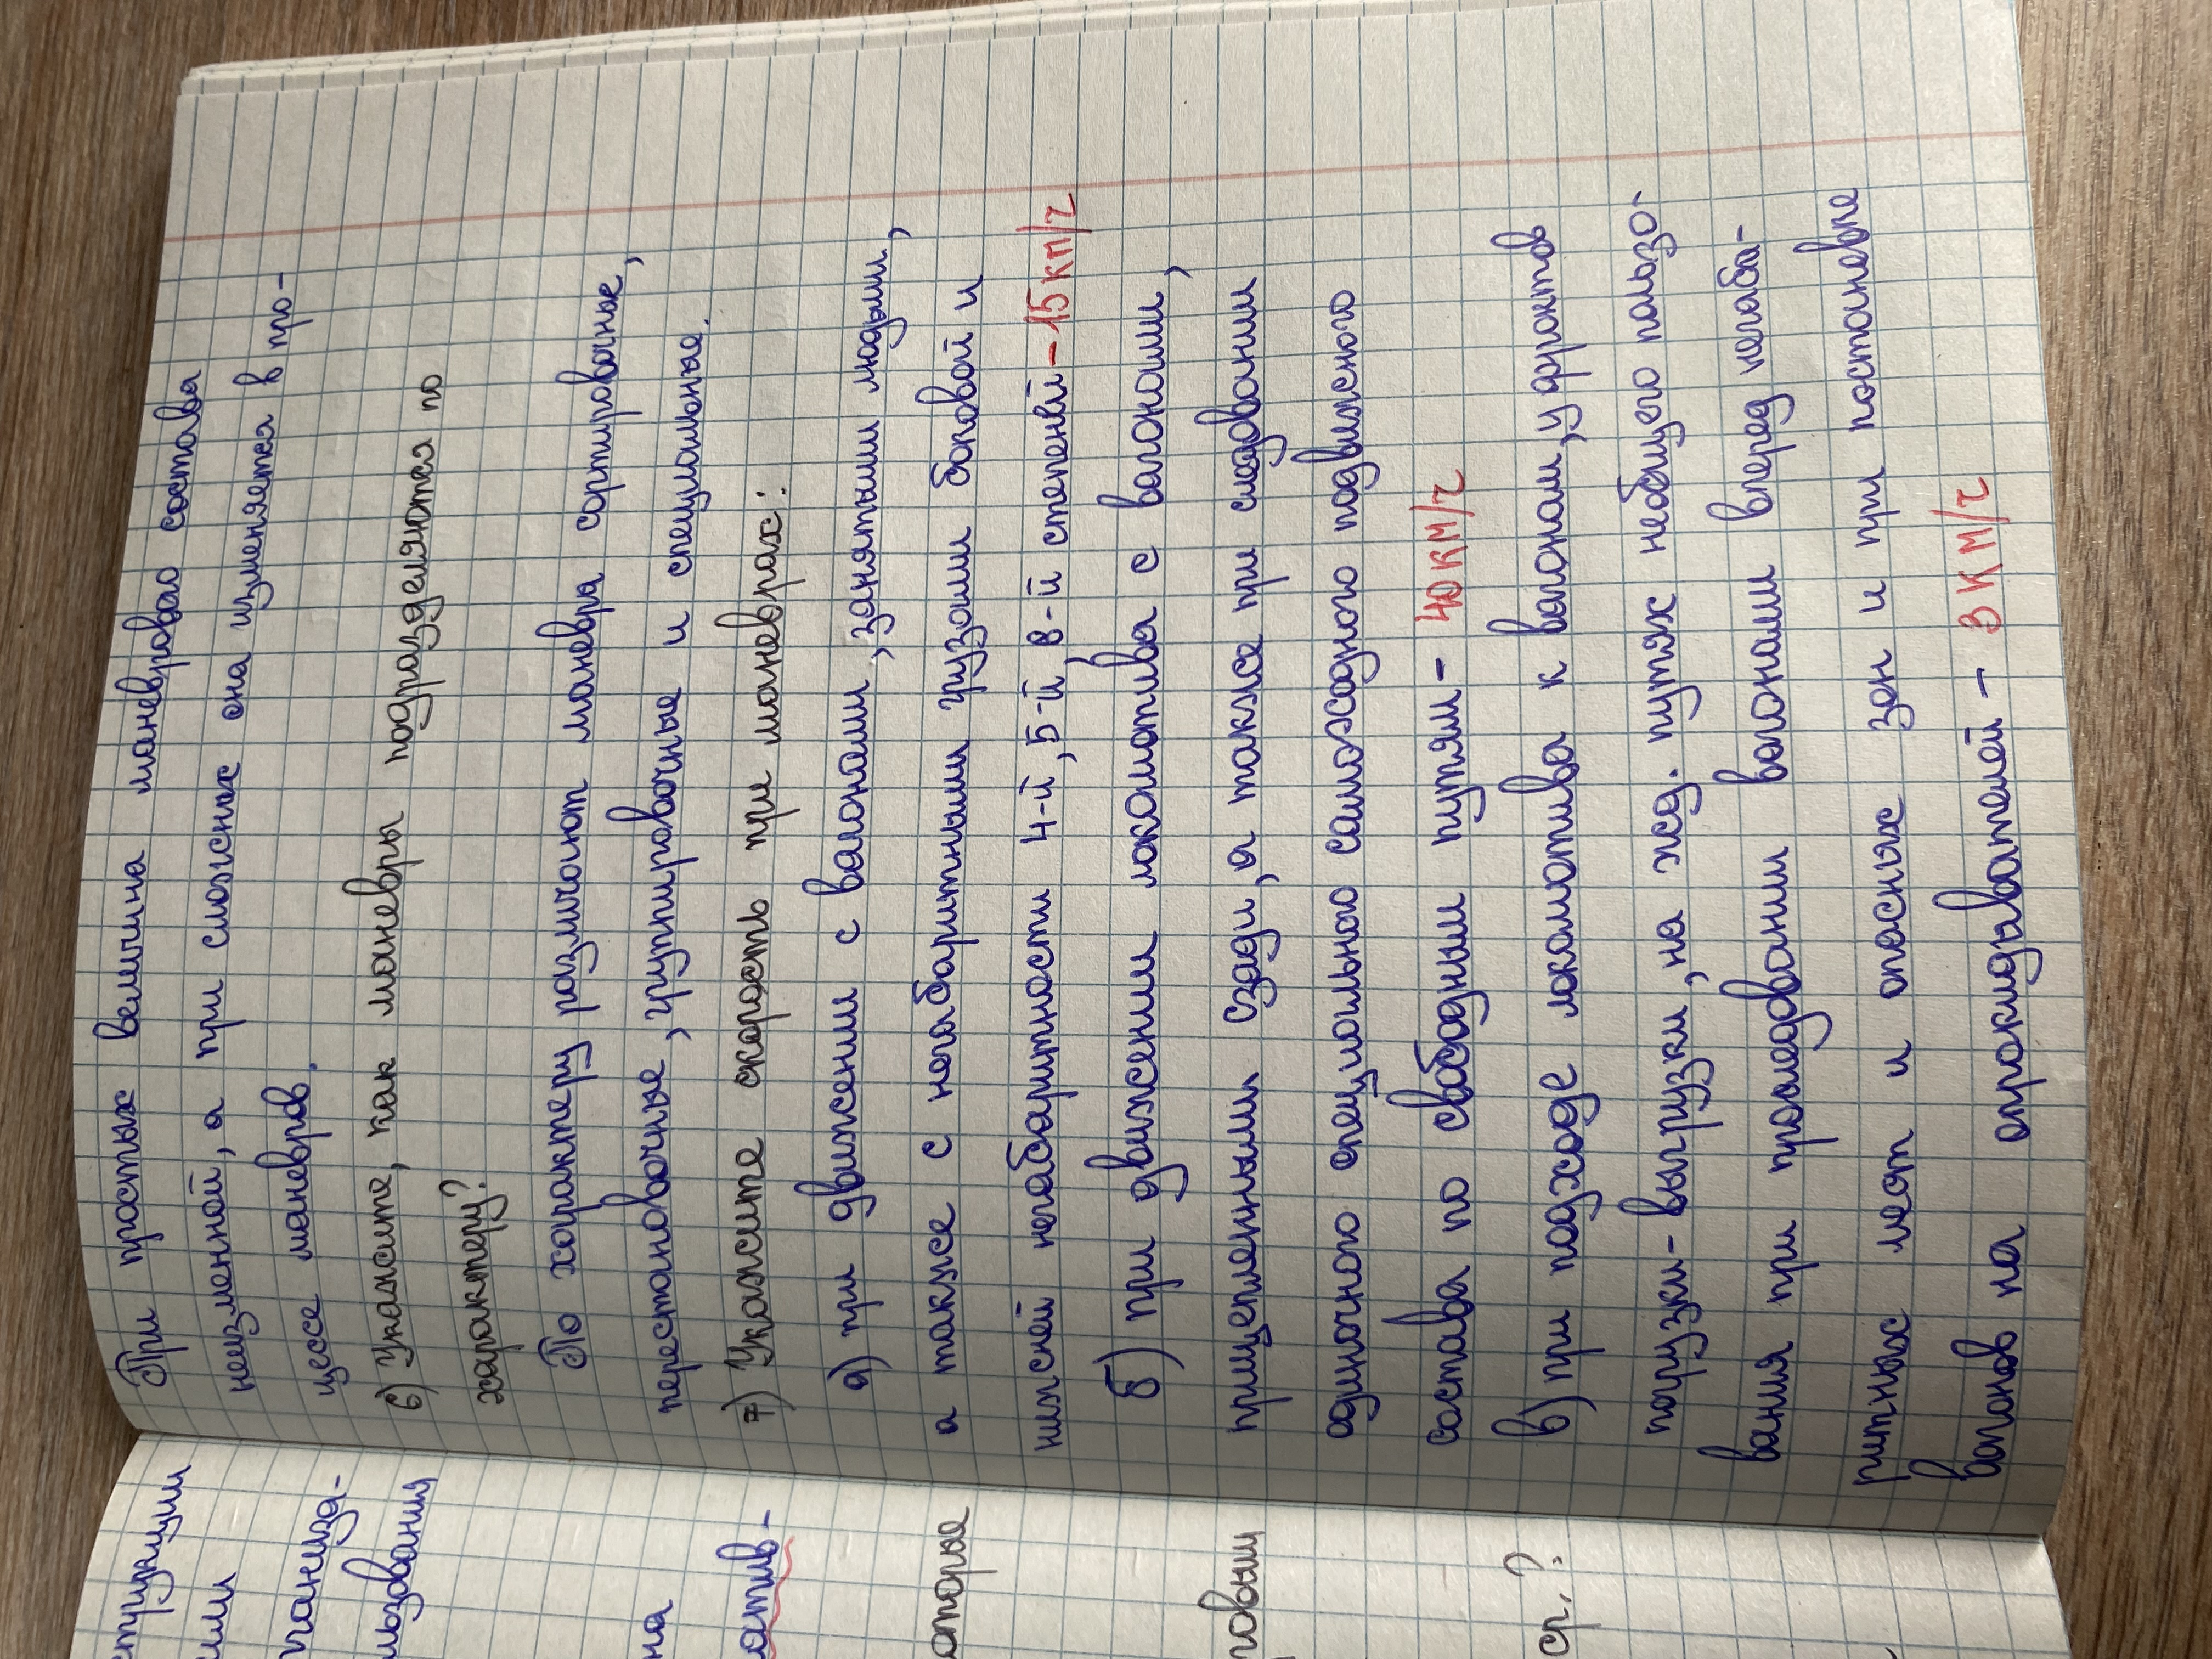 При простых величина маневрового состава
неизменной, а при сложных она изменяется в про-
цессе маневров.
6) Укажите, как маневры подразделяются по
характеру?
По характеру различают маневра сортировочные,
перестановочные, группировочные и специальные.
7) Укажите скорость при маневрах:
а) при движении с вагонами, занятыми людьми,
а также с негабаритными грузами боковой и
нижней негабаритности 4-й, 5-й, 8-й степеней - 15 км/ч
б) при движении локомотива с вагонами,
прицепленными сзади, а также при следовании
одиночного специального самоходного подвижного
состава по свободным путям - 40 км/ч
в) при подходе локомотива к вагонам, у фронтов
погрузки-выгрузки, на жд. путях необщего пользо-
вания при проследовании вагонами вперед негаба-
ритных мест и опасных зон и при постановке
вагонов на опрокидывателей - 3 км/ч
струкции
ьзования
на
отив-
оторые
говым
ср.?